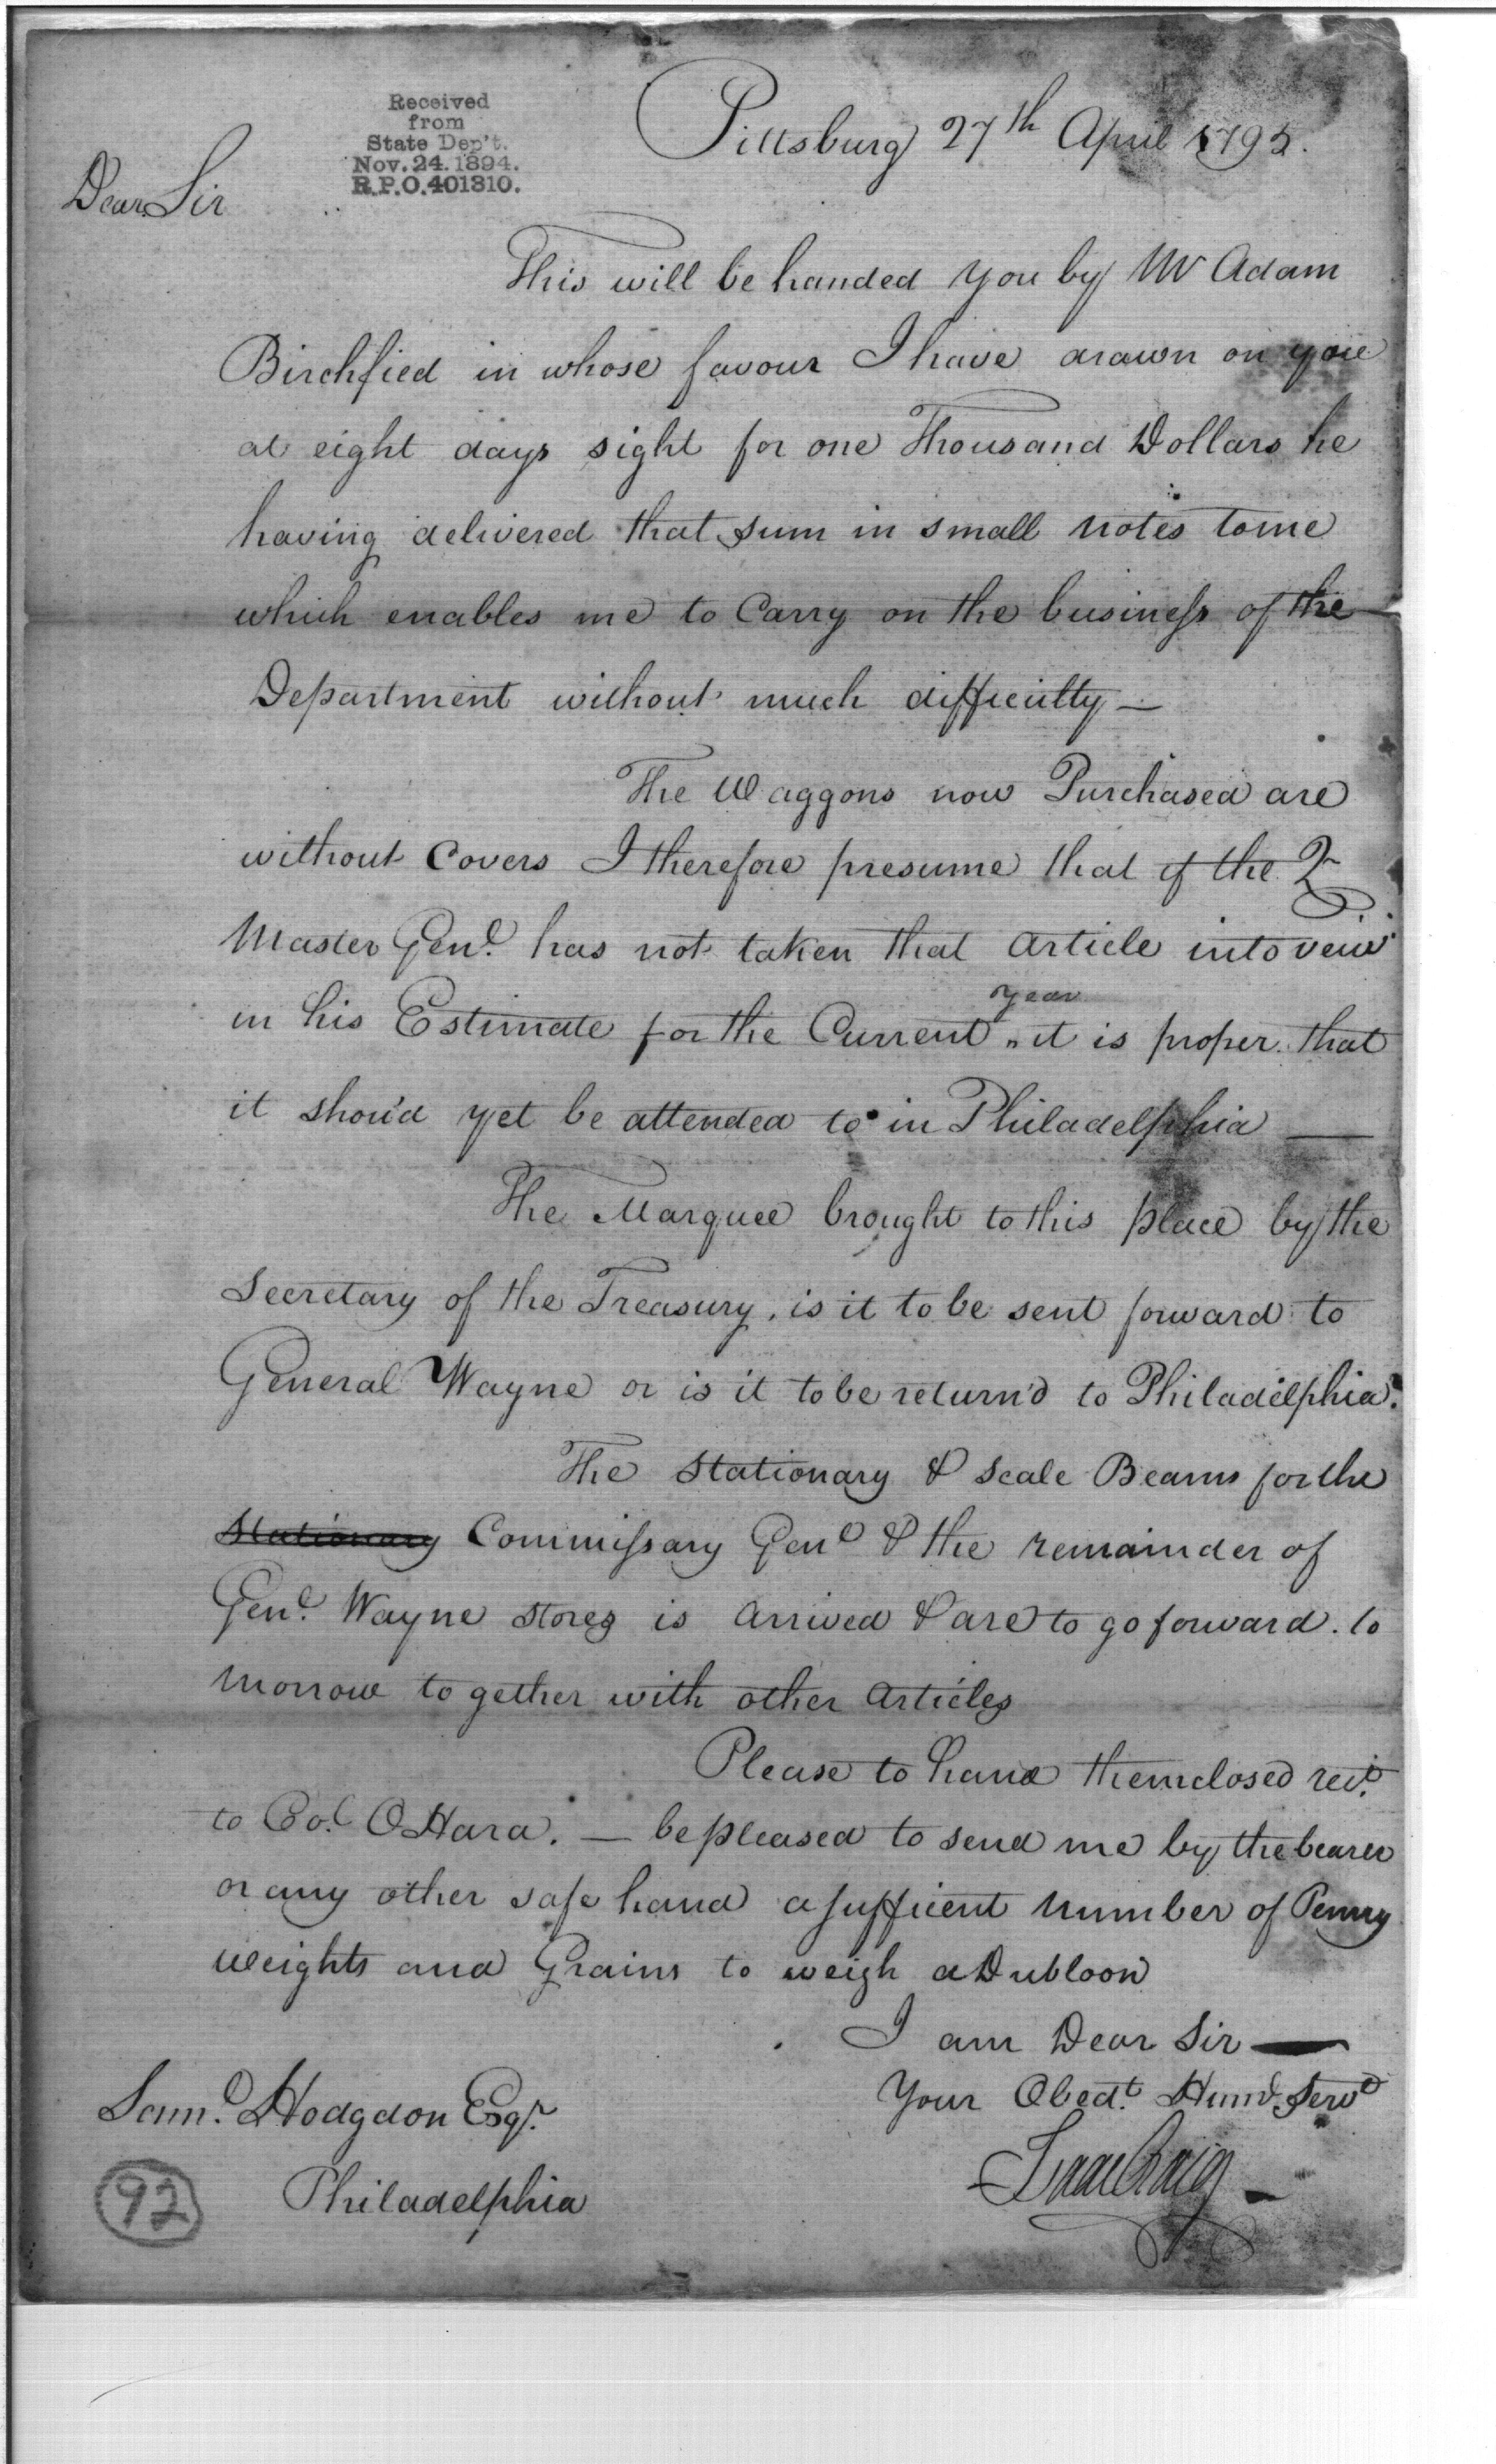 Received
from
State Dep't.
Nov. 24. 1894.
R.P.O. 401310.
Pittsburg 27th April 1795.
Dear Sir
This will be handed you by Mr Adam
Birchfied in whose favour I have drawn on you
at eight days sight for one Thousand Dollars he
having delivered that sum in small notes to me
which enables me to Carry on the business of the
Department without much difficulty —
The Waggons now Purchased are
without Covers I therefore presume that if the Qr
Master Genl. has not taken that article into veiw
in his Estimate for the Current year it is proper that
it shou'd yet be attended to in Philadelphia —
The Marquee brought to this place by the
Secretary of the Treasury, is it to be sent forward to
General Wayne or is it to be return'd to Philadelphia?
The Stationary & Scale Beams for the
Stationary Commissary Genl & the remainder of
Genl. Wayne stores is arrived & are to go forward. to
morrow to gether with other articles
Please to hand the inclosed rect.
to Col. OHara. — be pleased to send me by the bearer
or any other safe hand a sufficent number of Penny
weights and Grains to weigh a Dubloon
I am Dear Sir —
Your Obedt. Humb. Servt
Isaac Craig
Saml. Hodgdon Esqr.
Philadelphia
92